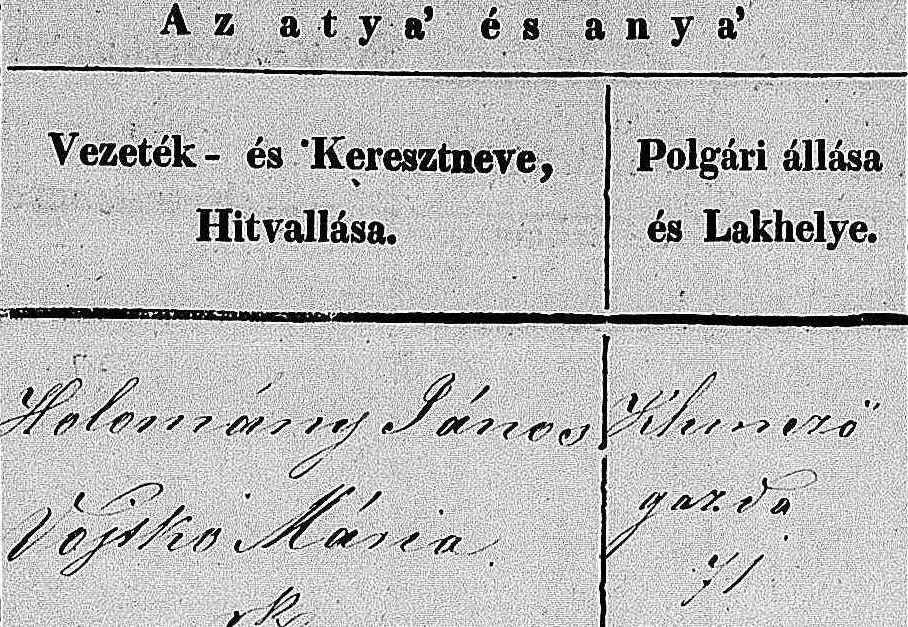 Az atya' és anya'
Vezeték- és Keresztneve,
Hitvallása.
Polgári állása
és Lakhelye.
Holomány János
Vojtko Mária
rk
gazda
71